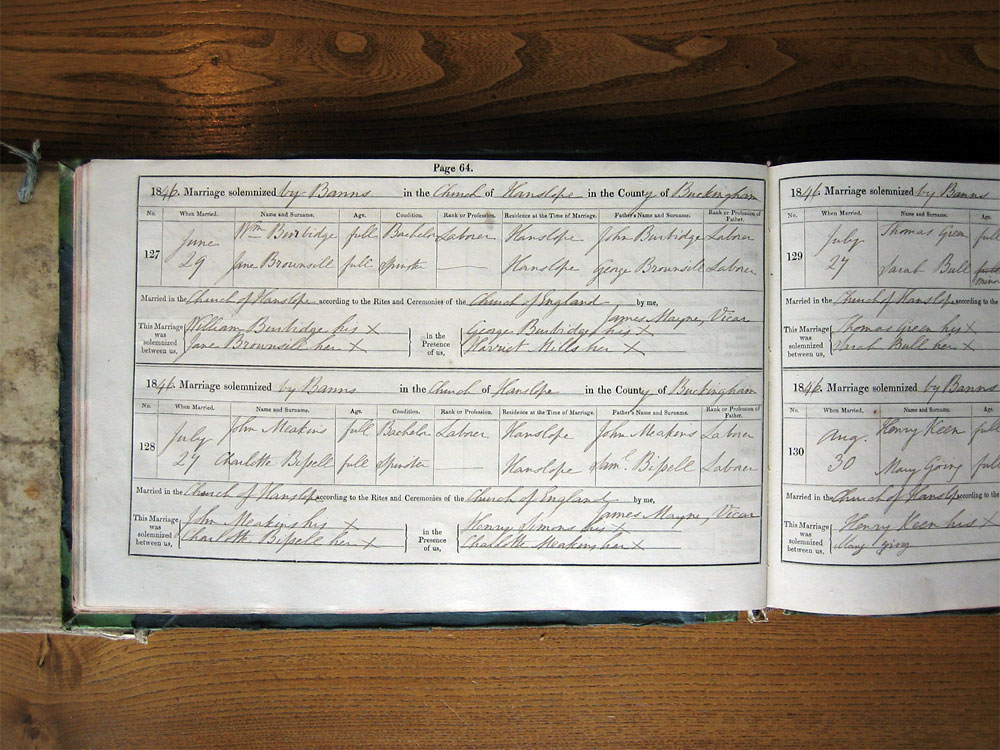 Page 64.
1846. Marriage solemnized by Banns in the Church of Hanslope in the County of Buckingham
No. When Married. Name and Surname. Age. Condition. Rank or Profession. Residence at the Time of Marriage. Father's Name and Surname. Rank or Profession of Father.
127 June 29 Wm Burbidge full Bachelor Laborer Hanslope John Burbidge Laborer
Jane Brownsill full Spinster — Hanslope George Brownsill Laborer
Married in the Church of Hanslope according to the Rites and Ceremonies of the Church of England by me,
James Mayne, Vicar
This Marriage was solemnized between us, William Burbidge his X in the Presence of us, George Burbidge his X
Jane Brownsill her X Harriet Mills her X
1846. Marriage solemnized by Banns in the Church of Hanslope in the County of Buckingham
No. When Married. Name and Surname. Age. Condition. Rank or Profession. Residence at the Time of Marriage. Father's Name and Surname. Rank or Profession of Father.
128 July 27 John Meakins full Bachelor Laborer Hanslope John Meakins Laborer
Charlotte Bissell full Spinster — Hanslope Saml. Bissell Laborer
Married in the Church of Hanslope according to the Rites and Ceremonies of the Church of England by me,
James Mayne, Vicar
This Marriage was solemnized between us, John Meakins his X in the Presence of us, Henry Simons his X
Charlotte Bissell her X Charlotte Meakins her X
1846. Marriage solemnized by Banns
No. When Married. Name and Surname. Age.
129 July 27 Thomas Green full
Sarah Bull minor
Married in the Church of Hanslope according to the
This Marriage was solemnized between us, Thomas Green his X
Sarah Bull her X
1846. Marriage solemnized by Banns
No. When Married. Name and Surname. Age.
130 Aug. 30 Henry Keen full
Mary Going full
Married in the Church of Hanslope according to the
This Marriage was solemnized between us, Henry Keen his X
Mary Going